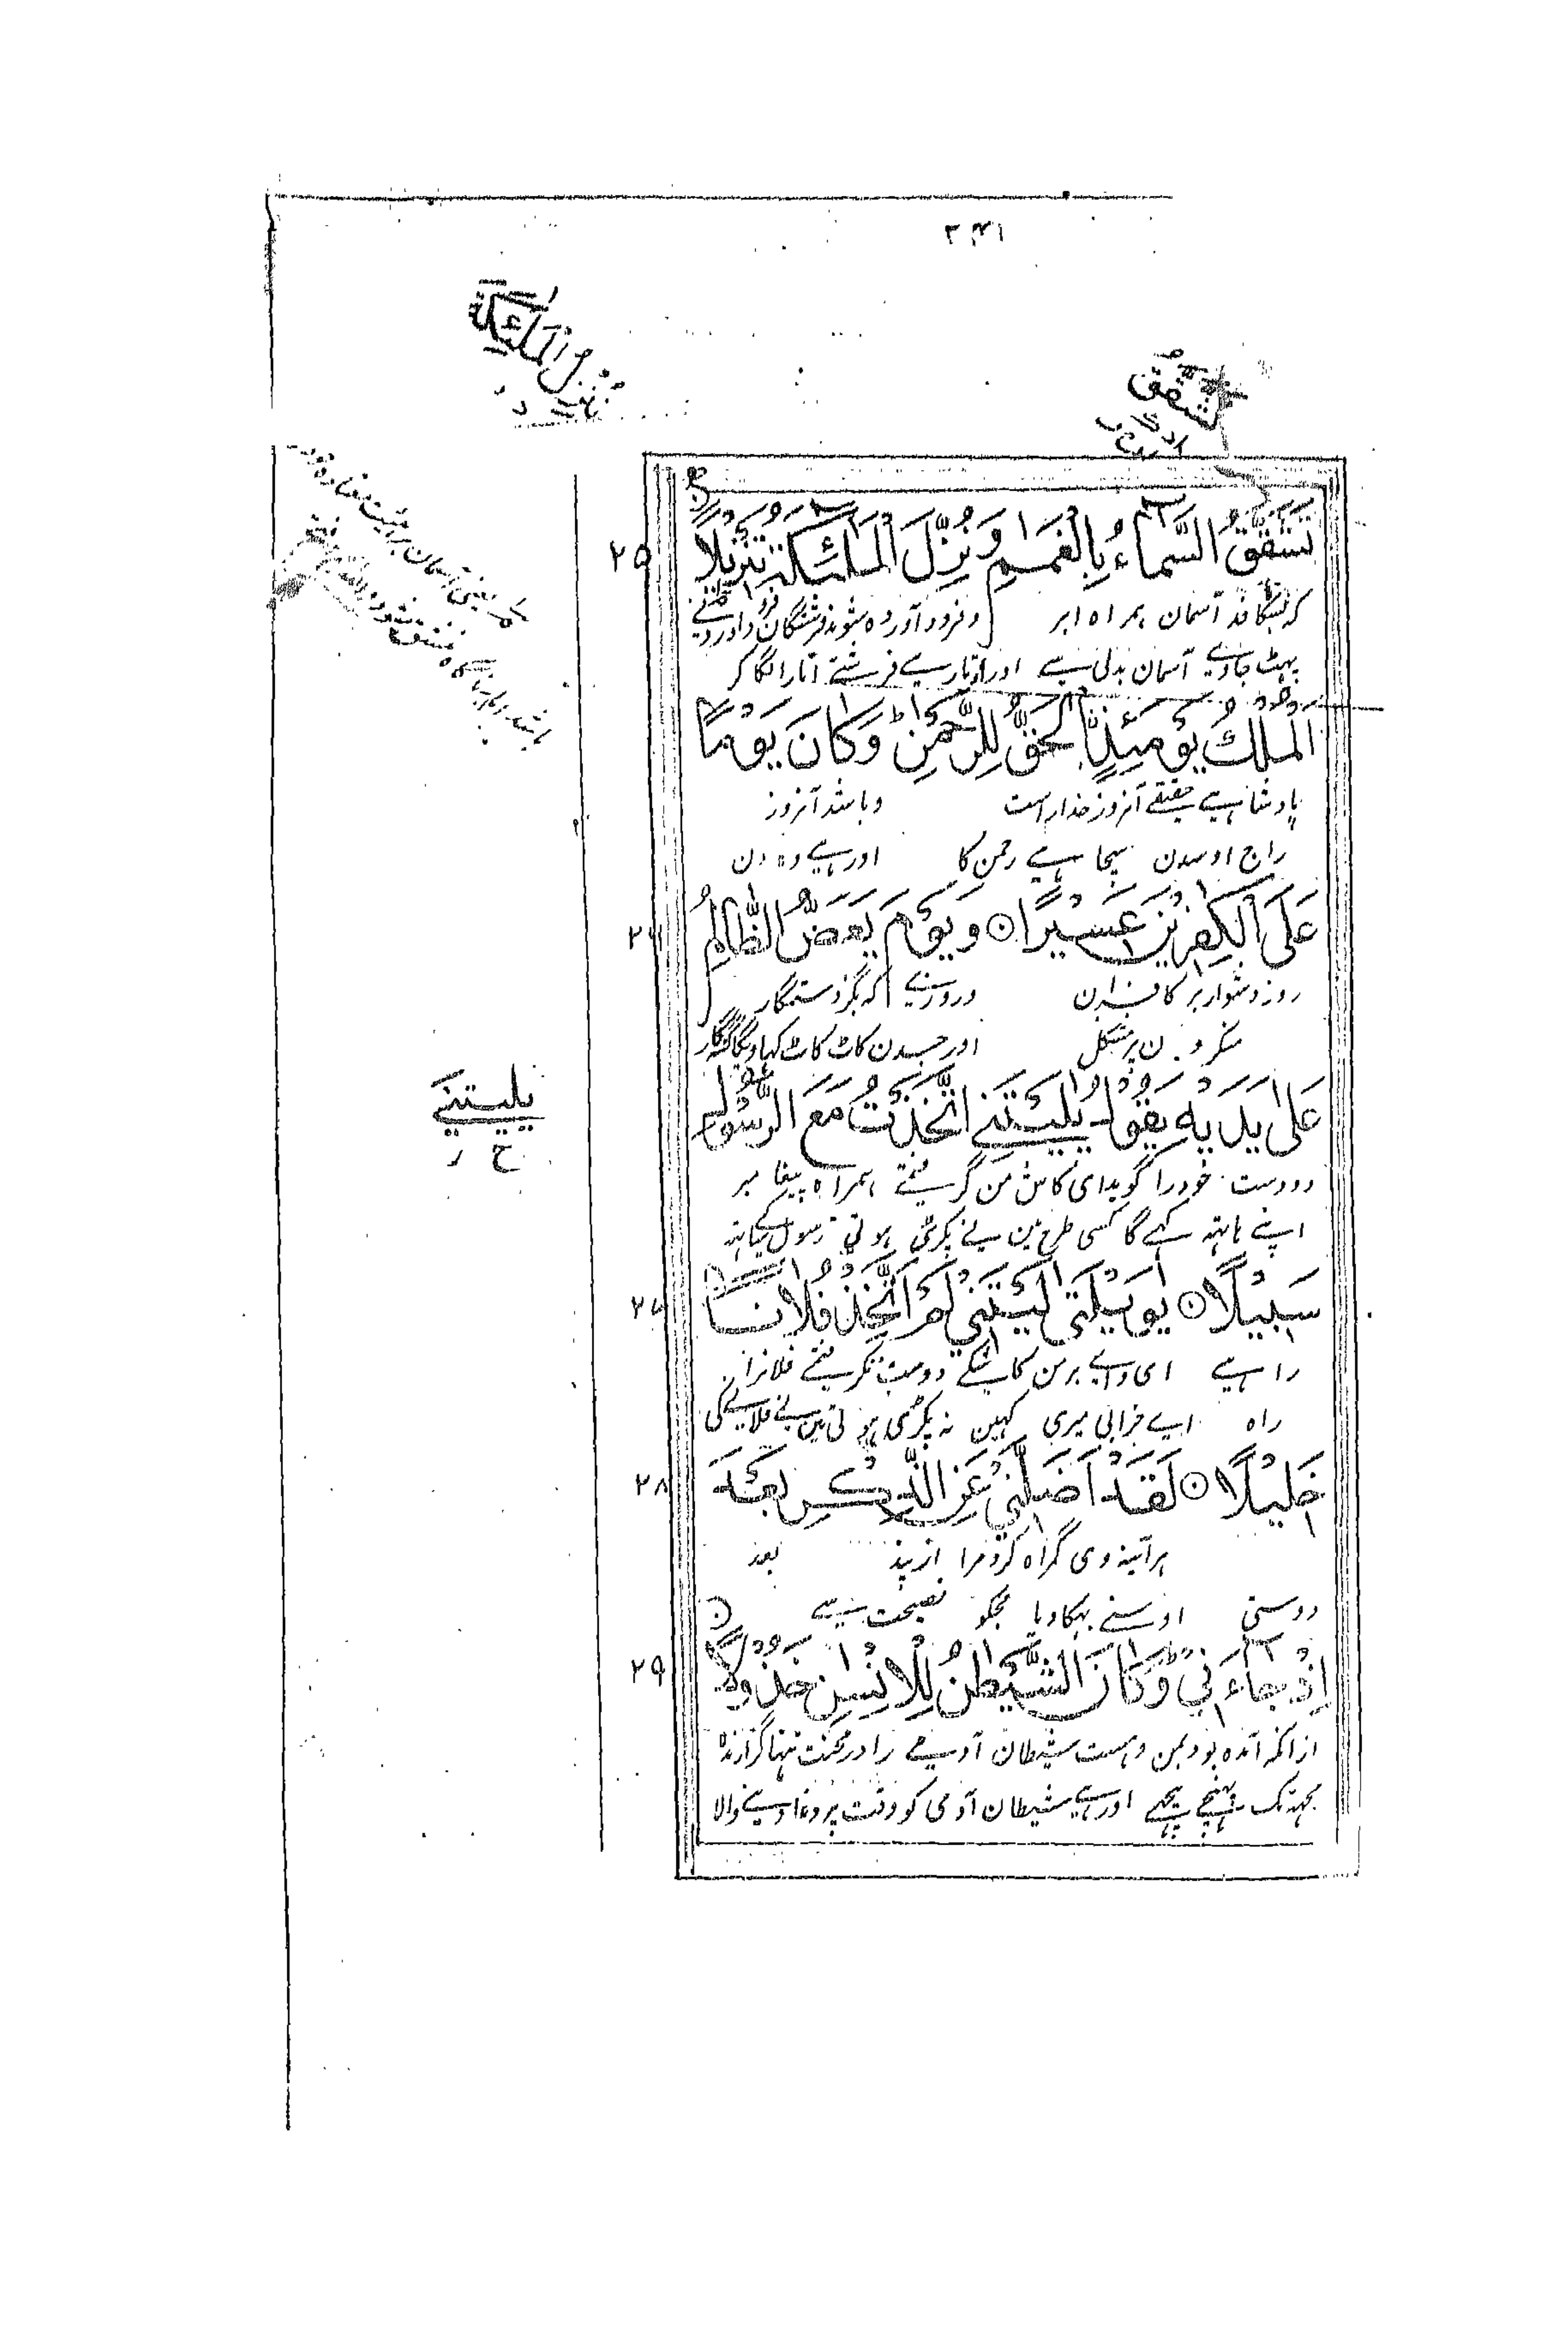 تَشَقَّقُ السَّمَاءُ بِالْغَمَامِ وَنُزِّلَ الْمَلٰئِكَةُ تَنْزِيْلًا
۲۵
که بشگافد آسمان همراه ابر و فرود آورده شوند فرشتگان
پہٹ جاوے آسمان بدلی سے اور اوتارے فرشتے اتارا لگا کر
اَلْمُلْكُ يَوْمَئِذِ ِۨالْحَقُّ لِلرَّحْمٰنِ ؕ وَكَانَ يَوْمًا
پادشاہیے حقیقے آنروز خداراست و باشد آنروز
راج اوسدن سچا ہے رحمن کا اور ہے وہ دن
عَلَى الْكٰفِرِيْنَ عَسِيْرًا ○ وَيَوْمَ يَعَضُّ الظَّالِمُ
روز دشوار بر کافران و روزیے که بگزد ستمگار
منکرون پر مشکل اور جسدن کاٹ کاٹ کہاویگا گنہگار
عَلٰى يَدَيْهِ يَقُوْلُ يٰلَيْتَنِي اتَّخَذْتُ مَعَ الرَّسُوْلِ
يٰلَيْتَنِي
ح ر
دو دست خود را گوید ای کاش من گرفتمے همراه پیغامبر
اپنے ہاتہہ کہے گا کسی طرح مین نے پکڑی ہوتی رسول کے ساتہہ
سَبِيْلًا ○ يٰوَيْلَتٰى لَيْتَنِيْ لَمْ اَتَّخِذْ فُلَانًا
راہیے ای وایے بر من کاشکے دوست نگرفتمے فلانرا
راہ ایے خرابی میری کہین نہ پکڑی ہوتی مین نے فلانے کی
۲۸
خَلِيْلًا ○ لَقَدْ اَضَلَّنِيْ عَنِ الذِّكْرِ بَعْدَ
هر آئینه وی گمراه کرد مرا از پند بعد
دوستی اوسنے بہکا دیا مجکو نصیحت سے
۲۹
اِذْ جَاءَنِيْ ؕ وَكَانَ الشَّيْطٰنُ لِلْاِنْسَانِ خَذُوْلًا ○
ازانکه آمده بود بمن و هست شیطان آدمیے را در محنت تنها گزارنده
مجہہ تک پہنچے پیچہے اور ہے شیطان آدمی کو وقت پر دغا دینے والا